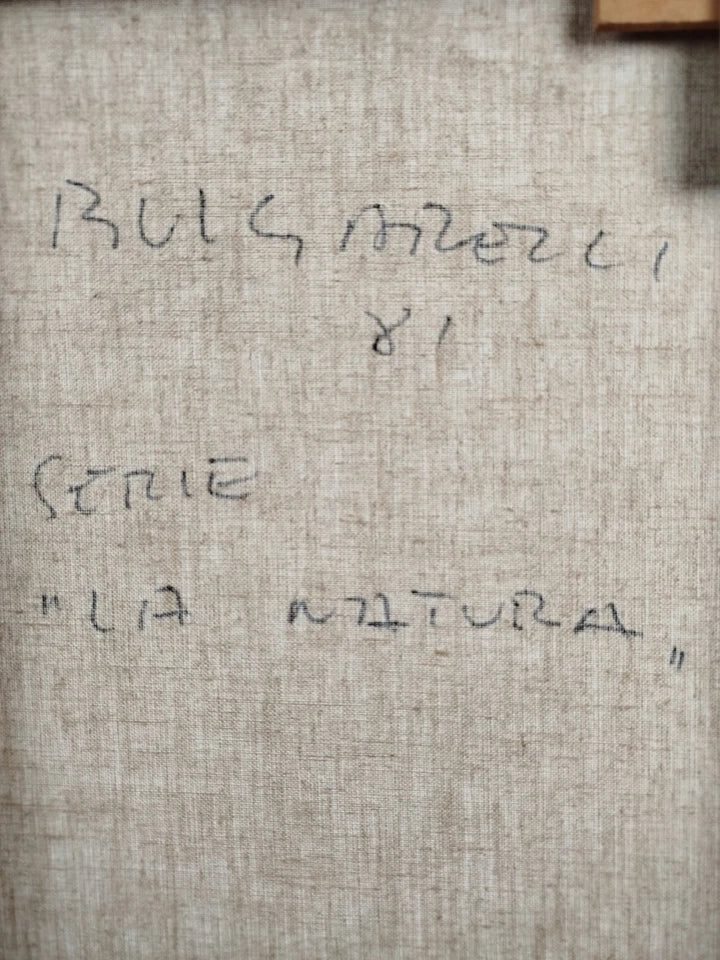 BULGARELLI
81
SERIE
"LA NATURA"